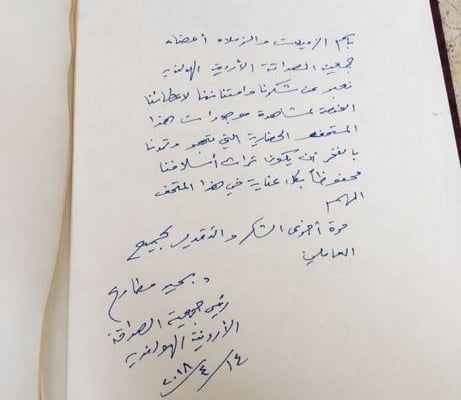 باسم الزميلات والزملاء أعضاء
جمعية الصداقة الأردنية الهولندية
نعبر عن شكرنا وامتناننا لاعطائنا
الفرصة لمشاهدة موجودات هذا
المتحف الحضارية التي وتمدنا
بالفخر أن يكون تراث أسلافنا
محفوظاً بكل عناية في هذا المتحف
المهم
مرة أخرى الشكر والتقدير لجميع
العاملين
د. مطارع
رئيس جمعية الصداقة
الأردنية الهولندية
١٤/٤/٢٠١٨